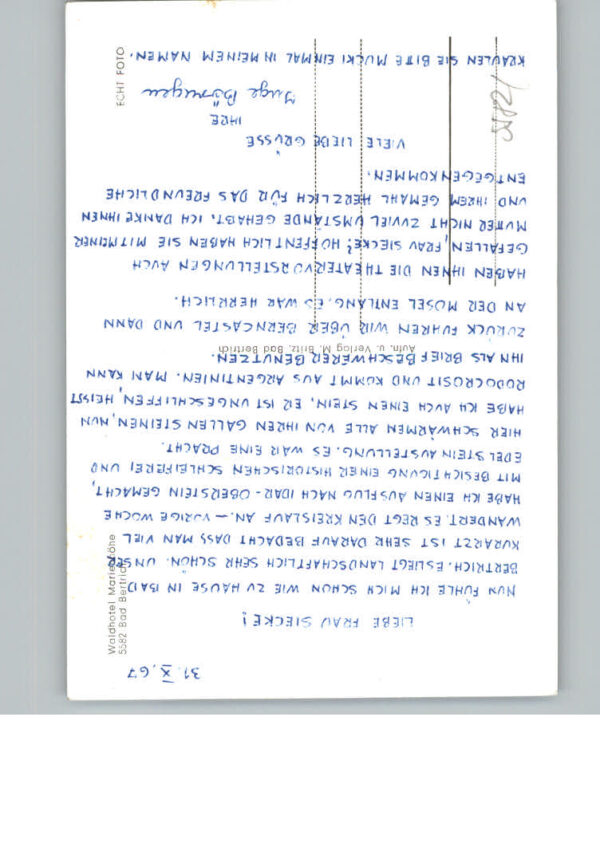 31. X. 67
LIEBE FRAU SIECKE!
NUN FÜHLE ICH MICH SCHON WIE ZU HAUSE IN BAD
BERTRICH. ES LIEGT LANDSCHAFTLICH SEHR SCHÖN. UNSER
KURARZT IST SEHR DARAUF BEDACHT DASS MAN VIEL
WANDERT. ES REGT DEN KREISLAUF AN. – VORIGE WOCHE
HABE ICH EINEN AUSFLUG NACH IDAR-OBERSTEIN GEMACHT,
MIT BESICHTIGUNG EINER HISTORISCHEN SCHLEIFEREI UND
EDELSTEINAUSTELLUNG. ES WAR EINE PRACHT.
HIER SCHWÄRMEN ALLE VON IHREN GALLENSTEINEN, NUN
HABE ICH AUCH EINEN STEIN, ER IST UNGESCHLIFFEN, HEISST
RODOCROSIT UND KOMMT AUS ARGENTINIEN. MAN KANN
IHN ALS BRIEFBESCHWERER BENUTZEN.
ZURÜCK FUHREN WIR ÜBER BERNCASTEL UND DANN
AN DER MOSEL ENTLANG. ES WAR HERRLICH.
HABEN IHNEN DIE THEATERVORSTELLUNGEN AUCH
GEFALLEN, FRAU SIECKE? HOFFENTLICH HABEN SIE MIT MEINER
MUTTER NICHT ZUVIEL UMSTÄNDE GEHABT. ICH DANKE IHNEN
UND IHREM GEMAHL HERZLICH FÜR DAS FREUNDLICHE
ENTGEGENKOMMEN.
VIELE LIEBE GRÜSSE
IHRE
Inge
KRAULEN SIE BITTE MUCKI EINMAL IN MEINEM NAMEN.
Waldhotel Marienhöhe
5582 Bad Bertrich
Aufn. u. Verlag M. Britz, Bad Bertrich
ECHT FOTO